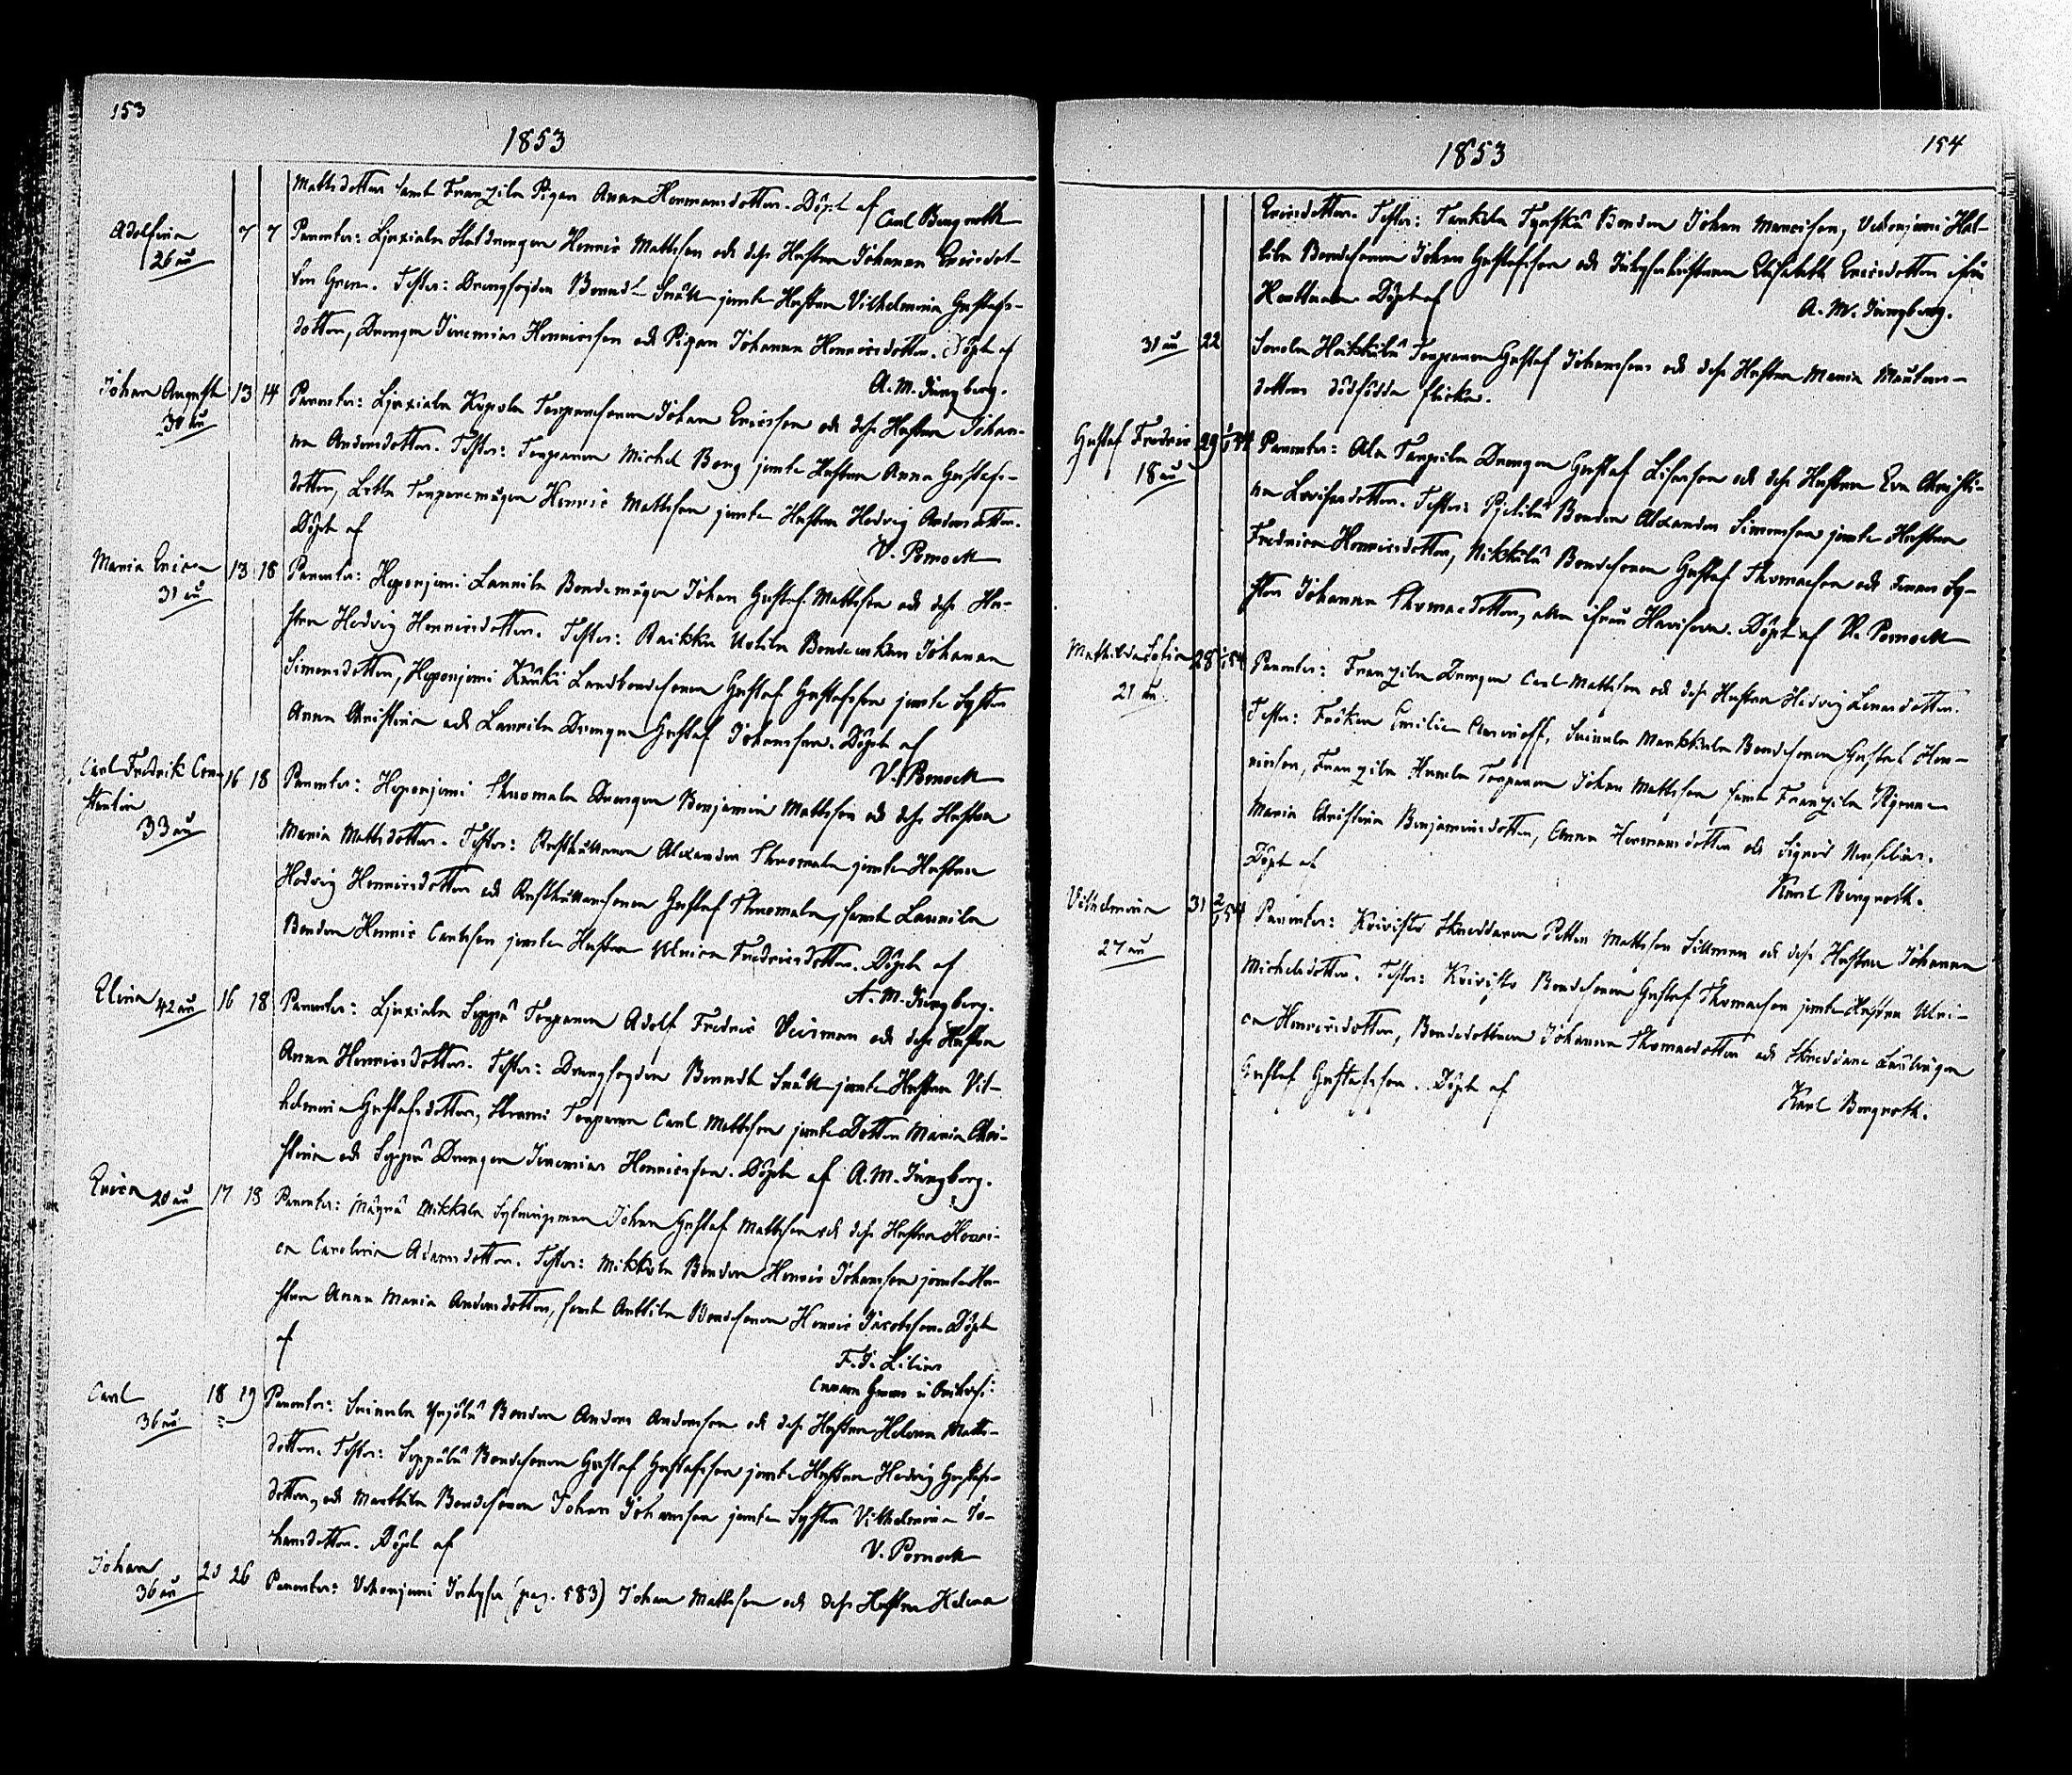 153
1853
Mattsdotter samt Franzila Pigan Anna Hermansdotter. Döpt af Carl Bergroth
Adolfina 7 7 Parenter: Ljuxiala Statdrängen Henric Mattsson och dess Hustru Johanna Ericsdot-
26 år ter Gren. Testes: Drängfogden Berndt Snäll jemte Hustrun Vilhelmina Gustafs-
dotter, Drängen Jeremias Henricsson och Pigan Johanna Henricsdotter. Döpt af
A. M. Ljungberg.
Johan August 13 14 Parenter: Ljuxiala Torparesonen Johan Ericsson och dess Hustru Johan-
30 år na Andersdotter. Testes: Torparen Michel Berg jemte Hustrun Anna Gustafs-
dotter, Torparemågen Henric Mattsson jemte Hustrun Hedvig Andersdotter.
Döpt af V. Pomoell
Maria Erica 13 18 Parenter: Heponjemi Laurila Bondemågen Johan Gustaf Mattsson och dess Hu-
31 år stru Hedvig Henricsdotter. Testes: Uotila Johanna
Simonsdotter, Heponjemi Landbondesonen Gustaf Gustafsson jemte Syster
Anna Christina och Laurila Drängen Gustaf Johansson. Döpt af
V. Pomoell
Carl Fredrik Con- 16 18 Parenter: Heponjemi Thuomala Drängen Benjamin Mattsson och dess Hustru
stantin
33 år Maria Mattsdotter. Testes: Rusthållaren Alexander Thuomala jemte Hustrun
Hedvig Henricsdotter och Rusthållaresonen Gustaf Thuomala, samt Laurila
Bonden Henric Carlsson jemte Hustrun Ulrica Fredricsdotter. Döpt af
A. M. Ljungberg.
Elina 42 år 16 18 Parenter: Ljuxiala Seppä Torparen Adolf Fredric och dess Hustru
Anna Henricsdotter. Testes: Drängfogden Berndt Snäll jemte Hustrun Vil-
helmina Gustafsdotter, Torparen Carl Mattsson jemte Dotter Maria Chri-
stina och Seppä Drängen Jeremias Henricsson. Döpt af A. M. Ljungberg.
Erica 20 år 17 18 Parenter: Mäyrä Mikkola Sytningsman Johan Gustaf Mattsson och dess Hustru Henri-
ca Carolina Adamsdotter. Testes: Mikkola Bonden Henric Johansson jemte Hu-
stru Anna Maria Andersdotter, samt Anttila Bondesonen Henric Jacobsson. Döpt
af F. J. Lilius
Carl 18 19 Parenter: Suinula Yrjölä Bonden Anders Andersson och dess Hustru Helena Matts-
36 år dotter. Testes: Seppälä Bondesonen Gustaf Gustafsson jemte Hustrun Hedvig Gustafs-
dotter, och Marttila Bondesonen Johan Johansson jemte Syster Vilhelmina Jo-
hansdotter. Döpt af V. Pomoell
Johan 26 Parenter: Vehonjemi Inhyses (pag. 583) Johan Mattsson och dess Hustru Helena
36 år
1853
154
Ericsdotter. Testes: Bonden Johan Mauritsson, Vehonjemi Hal-
lila Bondesonen Johan Gustafsson och Inhyseshustrun Elisabeth Ericsdotter ifrån
Döpt af A. M. Ljungberg.
31 år 22 Sorola Heikkilä Torparen Gustaf Johansson och dess Hustru Maria
dotters dödfödda flicka.
Gustaf Fredric 29 1/1 54 Parenter: Ala Drängen Gustaf och dess Hustru Eva Christi-
18 år na Lovisasdotter. Testes: Bonden Alexander Simonsson jemte Hustrun
Fredrica Henricsdotter, Mikkilä Bondesonen Gustaf Thomasson och dennes Sy-
ster Johanna Thomasdotter, Döpt af V. Pomoell
Mathilda Sofia 28 1/1 54 Parenter: Franzila Drängen Carl Mattsson och dess Hustru Hedvig
21 år Testes: Fröken Emilia Suinula Markkula Bondesonen Gustaf Hen-
ricsson, Franzila Torparen Johan Mattsson samt Franzila Pigorna
Maria Christina Benjaminsdotter, Anna Hermansdotter och Sigrid
Döpt af Karl Bergroth.
Vilhelmina 31 2/1 54 Parenter: Koivisto Skreddaren Petter Mattsson och dess Hustru Johanna
27 år Michelsdotter. Testes: Koivisto Bondesonen Gustaf Thomasson jemte Hustrun Ulri-
ca Henricsdotter, Bondedottern Johanna Thomasdotter och Skreddare Lärlingen
Gustaf Gustafsson. Döpt af Karl Bergroth.